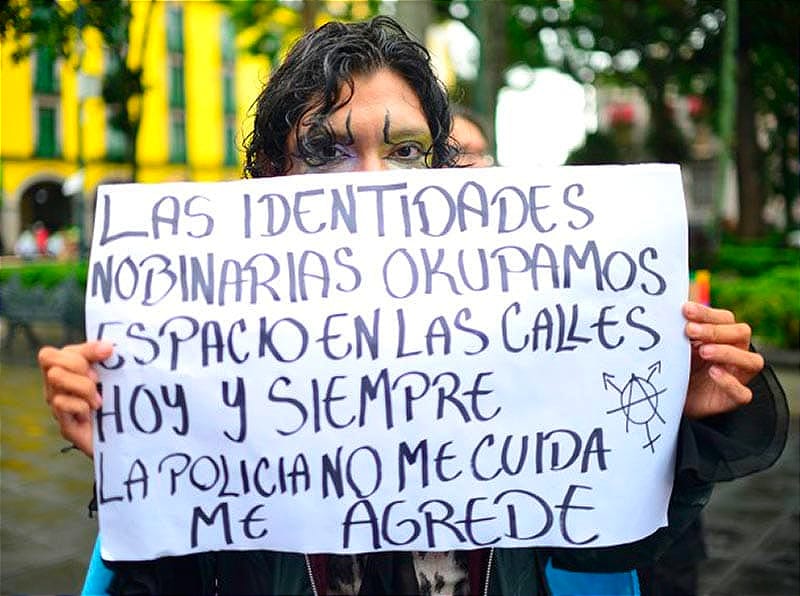 LAS IDENTIDADES
NOBINARIAS OKUPAMOS
ESPACIO EN LAS CALLES
HOY Y SIEMPRE
LA POLICIA NO ME CUIDA
ME AGREDE